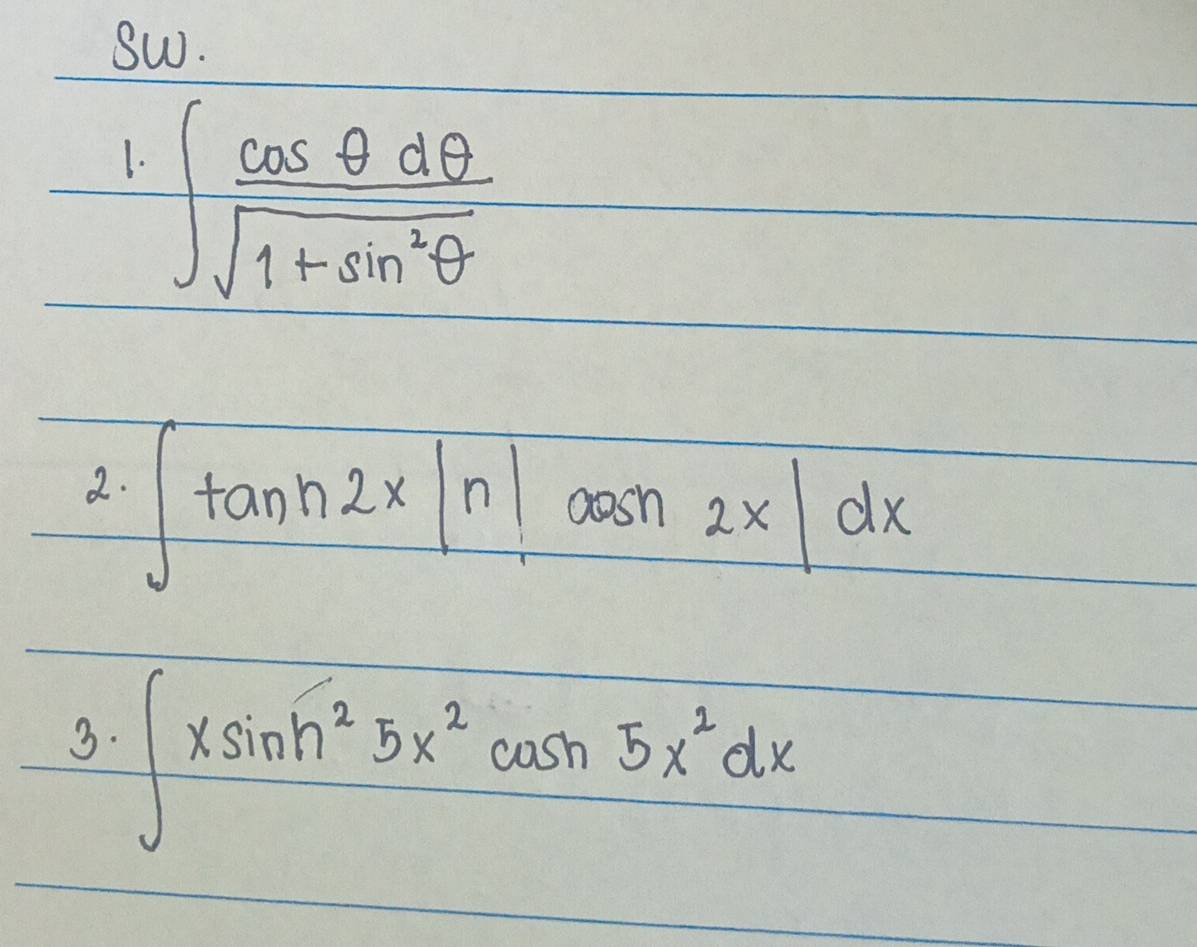 SW.
1. ∫ cos θ dθ / √(1 + sin²θ)
2. ∫ tanh 2x ln | cosh 2x | dx
3. ∫ x sinh² 5x² cosh 5x² dx